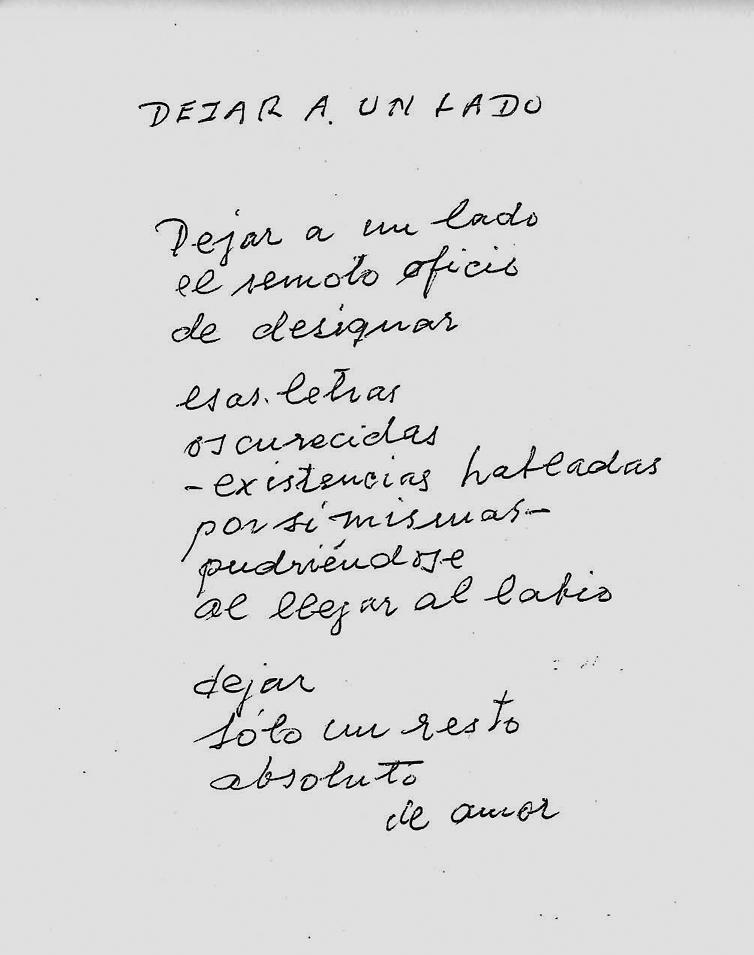 DEJAR A UN LADO
Dejar a un lado
el remoto oficio
de designar
esas letras
oscurecidas
-existencias habladas
por sí mismas-
pudriéndose
al llegar al labio
dejar
sólo un resto
absoluto
de amor